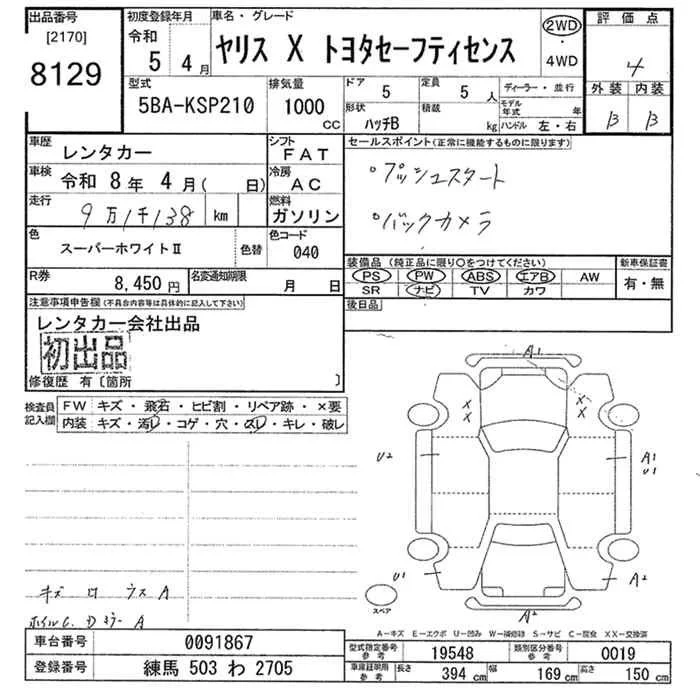 出品番号
[2170]
8129
初度登録年月
令和
5 4 月
車名・グレード
ヤリス X トヨタセーフティセンス
2WD
・
4WD
評価点
4
外装 内装
B B
型式
5BA-KSP210
排気量
1000
CC
ドア 5
定員 5 人
形状
ハッチB
積載
kg
ディーラー・並行
モデル年式 年
ハンドル 左・右
車歴
レンタカー
シフト
FAT
車検 令和 8 年 4 月( 日)
冷房
AC
走行
9万1千138 km
燃料
ガソリン
色
スーパーホワイトⅡ
色替
色コード
040
R券
8,450 円
名変通知期限
月 日
セールスポイント(正常に機能するものに限ります)
・プッシュスタート
・バックカメラ
装備品(純正品に限り○をつけてください)
PS PW ABS エアB AW
SR ナビ TV カワ
新車保証書
有・無
後日品
注意事項申告欄(不具合内容等は具体的に記入して下さい)
レンタカー会社出品
初出品
修復歴 有〔箇所 〕
検査員記入欄
FW キズ・飛石・ヒビ割・リペア跡・×要
内装 キズ・汚レ・コゲ・穴・スレ・キレ・破レ
A1
X X
X X
U2
A1
U1
U1
A2
スペア
A2
A
A
A-キズ E-エクボ U-凹み W-補修跡 S-サビ C-腐食 XX-交換済
車台番号 0091867
登録番号 練馬 503 わ 2705
型式指定番号
参考
19548
類別区分番号
参考
0019
車庫証明用
参考
長さ 394 cm
幅 169 cm
高さ 150 cm